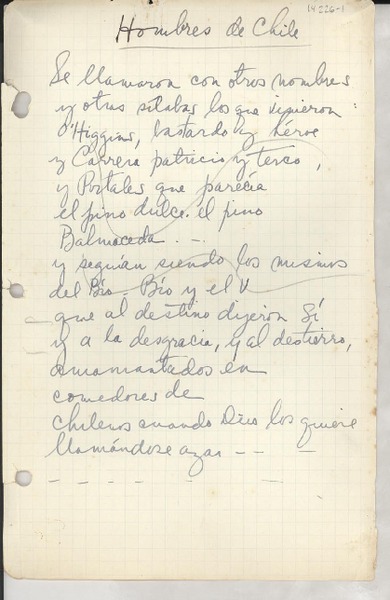 14226-1
Hombres de Chile
Se llamaron con otros nombres
y otras sílabas los que vinieron:
O'Higgins, bastardo y héroe
y Carrera patricio y terco,
y Portales que parecía
el pino dulce. el pino
Balmaceda. —
y seguían siendo los mismos
del Bío-Bío y el V
que al destino dijeron Sí
y a la desgracia, y al destierro,
amamantados en
comedores de
chilenos cuando Dios los quiere
llamándose azar — — —
— — — — — —